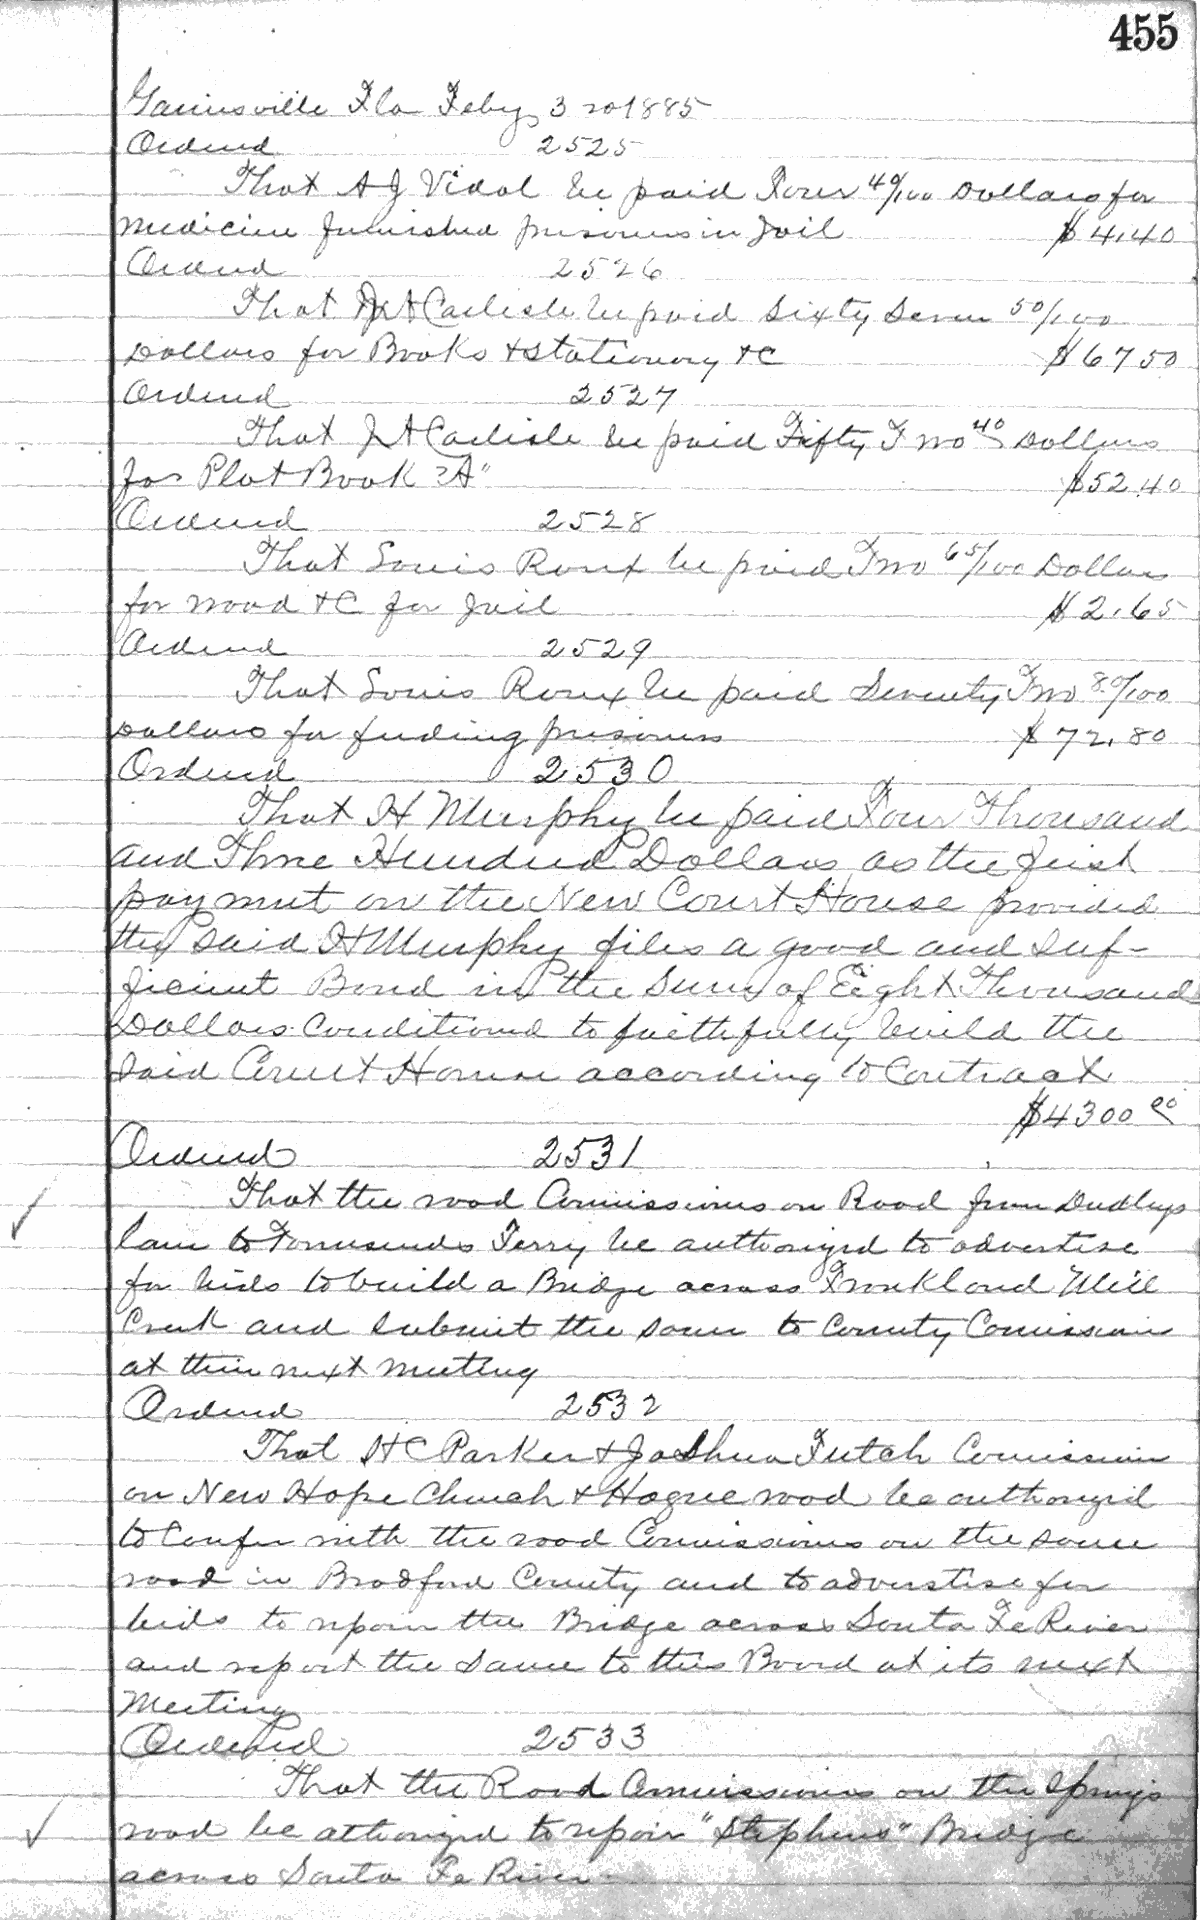 455
Gainesville Fla Feby 3rd 1885
Ordered 2525
That A J Vidal be paid Four 40/100 Dollars for
medicine furnished prisoners in Jail $4.40
Ordered 2526
That J A Carlisle be paid Sixty Seven 50/100
Dollars for Books & Stationery &C $67 50
Ordered 2527
That J A Carlisle be paid Fifty Two 40 Dollars
for Plat Book "A" $52.40
Ordered 2528
That Louis Roux be paid Two 65/100 Dollars
for wood &C for Jail $2.65
Ordered 2529
That Louis Roux be paid Seventy Two 80/100
Dollars for feeding prisoners $72.80
Ordered 2530
That H Murphy be paid Four Thousand
and Three Hundred Dollars as the first
payment on the New Court House provided
the said H Murphy files a good and suf-
ficient Bond in the Sum of Eight Thousand
Dollars Conditioned to faithfully build the
said Court House according to Contract
$4300 00
Ordered 2531
That the road Comissioners on Road from Dudleys
lane to Townsends Ferry be authorized to advertise
for bids to build a Bridge across Mill
Creek and submit the same to County Comissioners
at their next meeting
Ordered 2532
That H C Parker & Joshua Futch Comissioners
on New Hope Church & Hague road be authorized
to Confer with the road Comissioners on the same
road in Bradford County and to adverstise for
bids to repair the Bridge across Santa Fe River
and report the same to this Board at its next
Meeting
Ordered 2533
That the Road Comissioners on the Springs
road be athorized to repair "Stephens" Bridge
across Santa Fe River